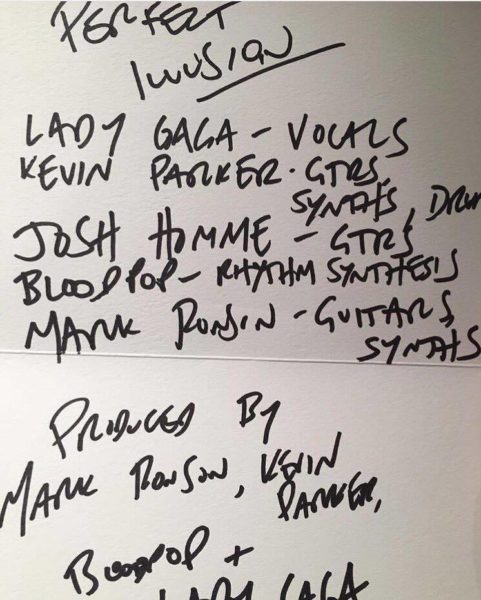 PERFECT
ILLUSION
LADY GAGA - VOCALS
KEVIN PARKER - GTRS,
SYNTHS, DRUM
JOSH HOMME - GTRS
BLOODPOP - RHYTHM SYNTHESIS
MARK RONSON - GUITARS
SYNTHS
PRODUCED BY
MARK RONSON, KEVIN
PARKER,
BLOODPOP +
LADY GAGA